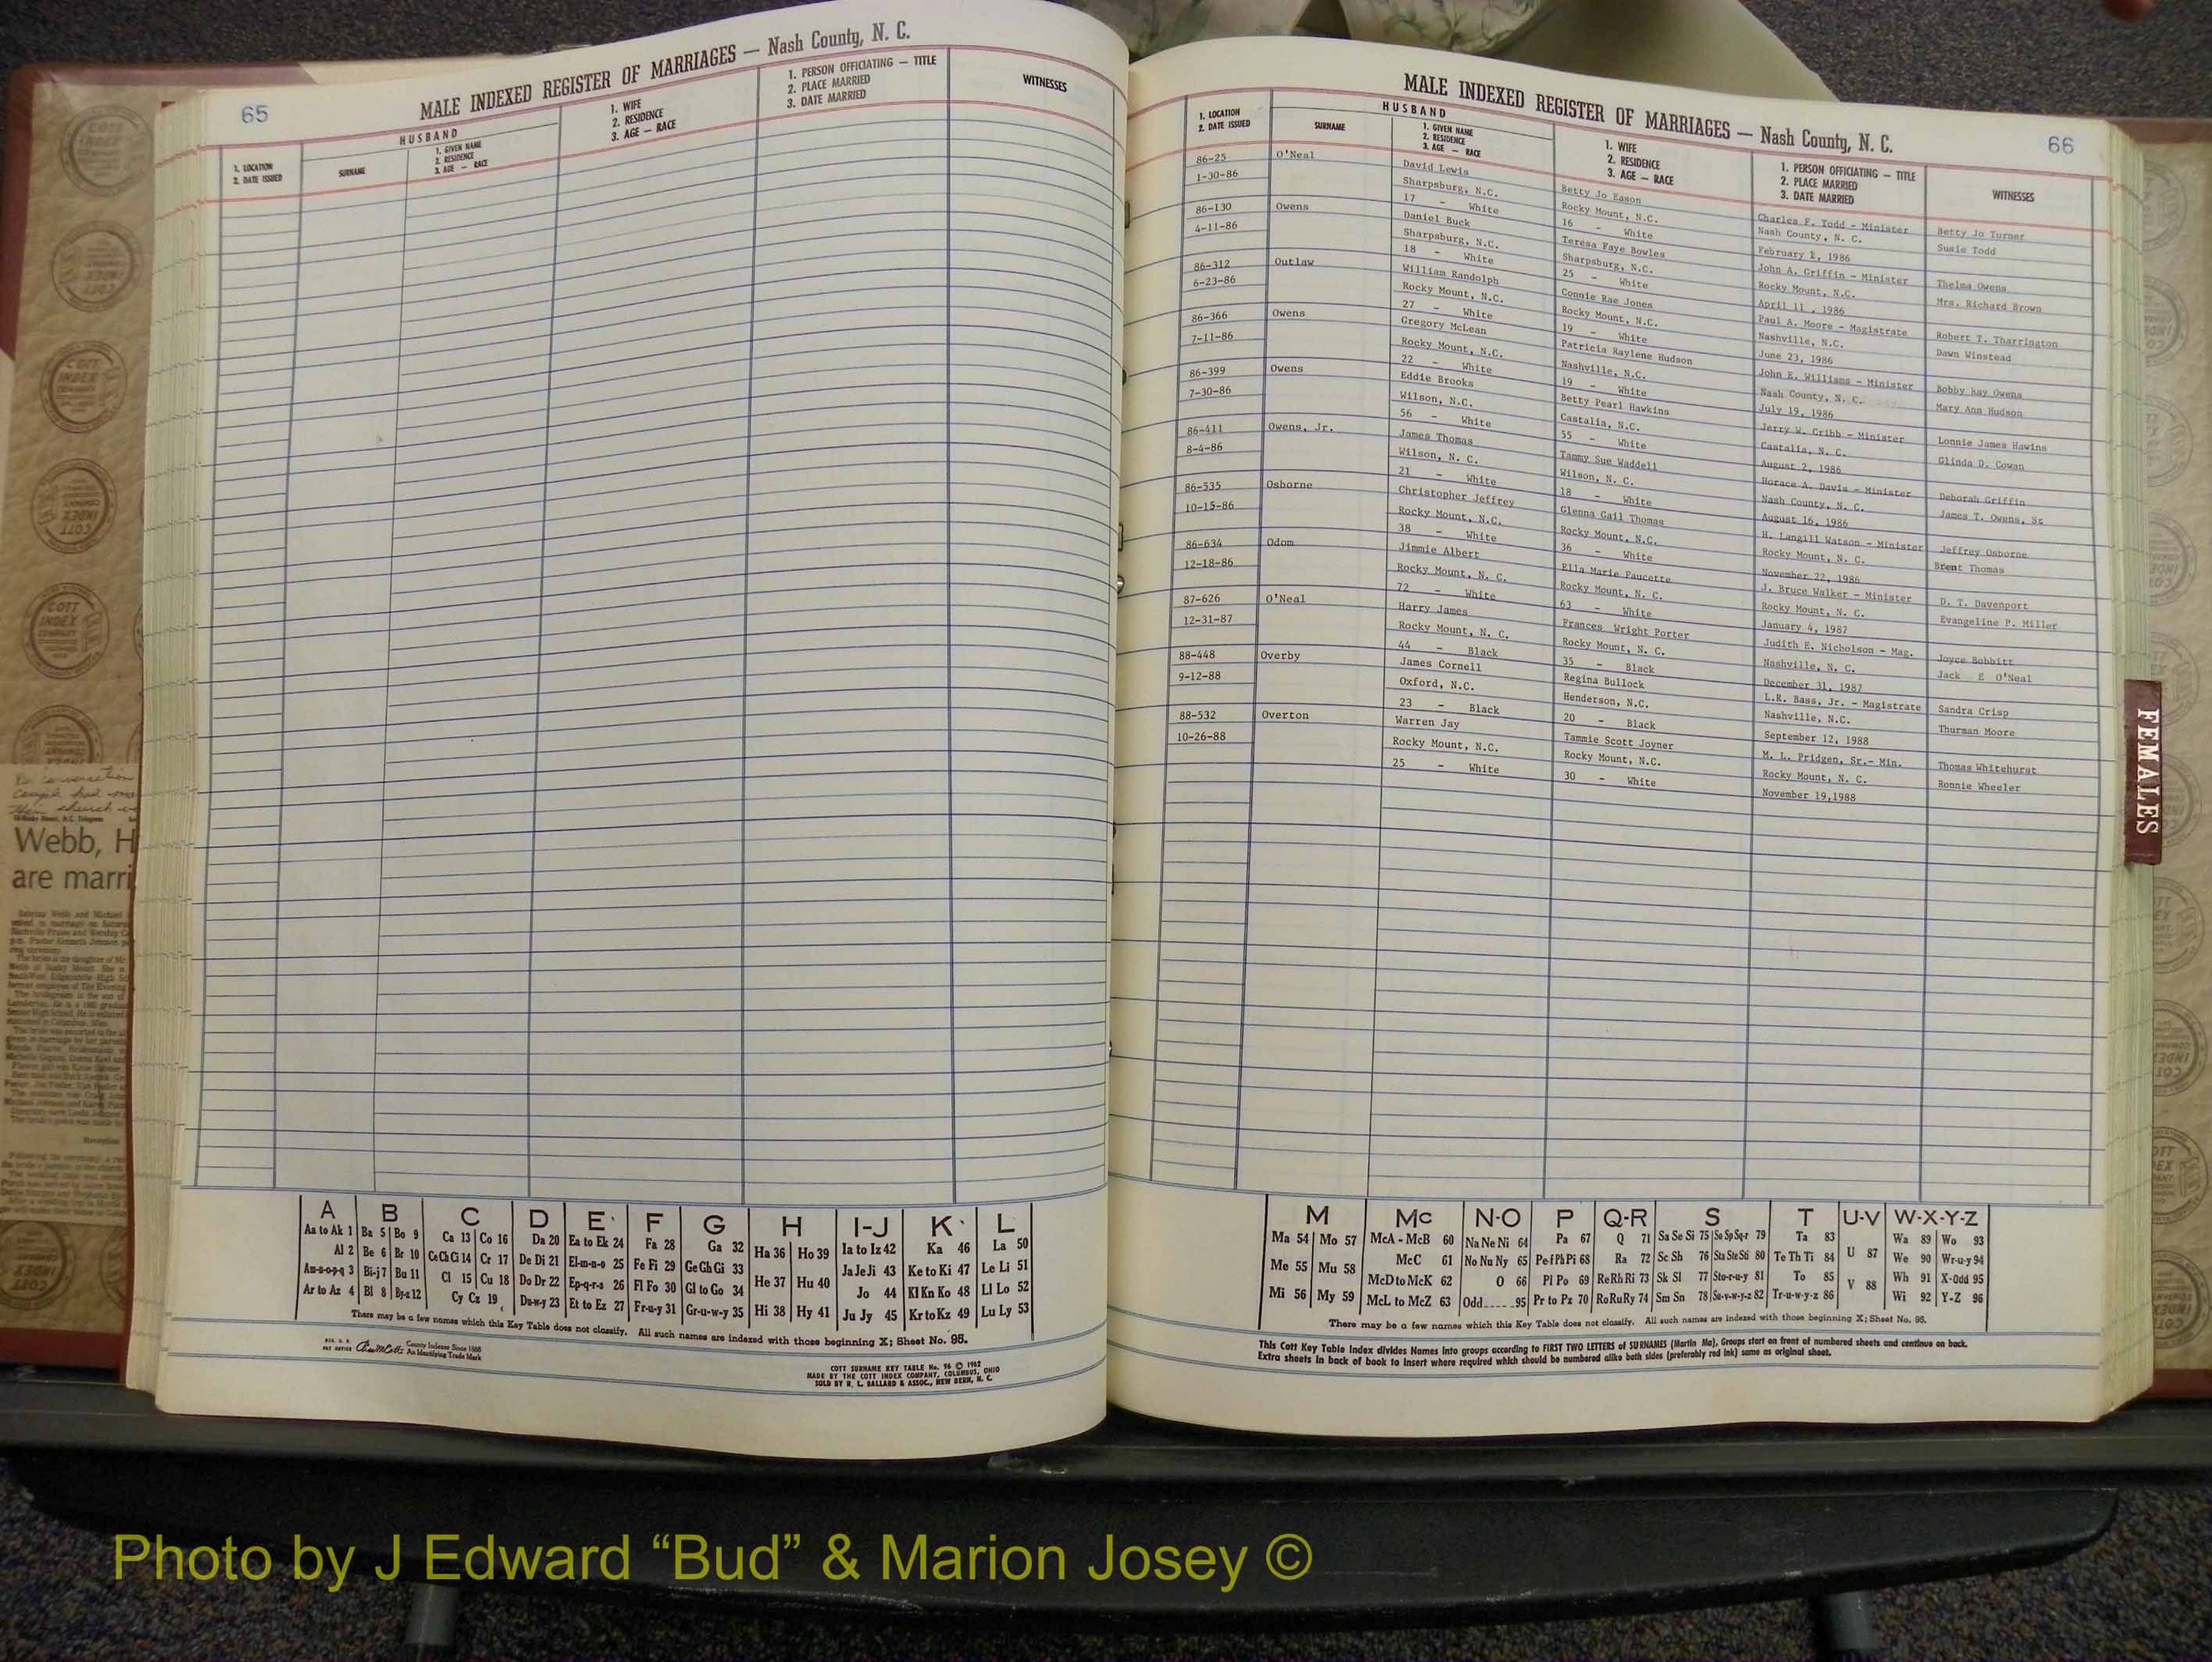 65
MALE INDEXED REGISTER OF MARRIAGES — Nash County, N. C.
1. LOCATION
2. DATE ISSUED
HUSBAND
SURNAME
1. GIVEN NAME
2. RESIDENCE
3. AGE — RACE
1. WIFE
2. RESIDENCE
3. AGE — RACE
1. PERSON OFFICIATING — TITLE
2. PLACE MARRIED
3. DATE MARRIED
WITNESSES
A B C D E F G H I-J K L
Aa to Ak 1 Ba 5 Bo 9 Ca 13 Co 16 Da 20 Ea to Ek 24 Fa 28 Ga 32 Ha 36 Ho 39 Ia to Iz 42 Ka 46 La 50
Al 2 Be 6 Br 10 Ce Ch Ci 14 Cr 17 De Di 21 El-m-n-o 25 Fe Fi 29 Ge Gh Gi 33 He 37 Hu 40 Ja Je Ji 43 Ke to Ki 47 Le Li 51
Am-n-o-p-q 3 Bi-j 7 Bu 11 Cl 15 Cu 18 Do Dr 22 Ep-q-r-s 26 Fl Fo 30 Gl to Go 34 Jo 44 Kl Kn Ko 48 Ll Lo 52
Ar to Az 4 Bl 8 By-z 12 Cy Cz 19 Du-w-y 23 Et to Ez 27 Fr-u-y 31 Gr-u-w-y 35 Hi 38 Hy 41 Ju Jy 45 Kr to Kz 49 Lu Ly 53
There may be a few names which this Key Table does not classify. All such names are indexed with those beginning X; Sheet No. 95.
REG. U. S.
PAT OFFICE
County Indexes Since 1888
An Identifying Trade Mark
COTT SURNAME KEY TABLE No. 96 © 1962
MADE BY THE COTT INDEX COMPANY, COLUMBUS, OHIO
SOLD BY R. L. BALLARD & ASSOC., NEW BERN, N. C.
66
MALE INDEXED REGISTER OF MARRIAGES — Nash County, N. C.
1. LOCATION
2. DATE ISSUED
HUSBAND
SURNAME
1. GIVEN NAME
2. RESIDENCE
3. AGE — RACE
1. WIFE
2. RESIDENCE
3. AGE — RACE
1. PERSON OFFICIATING — TITLE
2. PLACE MARRIED
3. DATE MARRIED
WITNESSES
86-25 O'Neal David Lewis Betty Jo Eason Charles F. Todd - Minister Betty Jo Turner
1-30-86 Sharpsburg, N.C. Rocky Mount, N.C. Nash County, N. C. Susie Todd
17 - White 16 - White February 1986
86-130 Owens Daniel Buck Teresa Faye Bowles John A. Griffin - Minister Thelma Owens
4-11-86 Sharpsburg, N.C. Sharpsburg, N.C. Rocky Mount, N.C. Mrs. Richard Brown
18 - White 25 - White April 11 , 1986
86-312 Outlaw William Randolph Connie Rae Jones Paul A. Moore - Magistrate Robert T. Tharrington
6-23-86 Rocky Mount, N.C. Rocky Mount, N.C. Nashville, N.C. Dawn Winstead
27 - White 19 - White June 23, 1986
86-366 Owens Gregory McLean Patricia Raylene Hudson John E. Williams - Minister Bobby Ray Owens
7-11-86 Rocky Mount, N.C. Nashville, N.C. Nash County, N. C. Mary Ann Hudson
22 - White 19 - White July 19, 1986
86-399 Owens Eddie Brooks Betty Pearl Hawkins Jerry W. Cribb - Minister Lonnie James Hawins
7-30-86 Wilson, N.C. Castalia, N.C. Castalia, N. C. Glinda D. Cowan
56 - White 55 - White August 2, 1986
86-411 Owens, Jr. James Thomas Tammy Sue Waddell Horace A. Davis - Minister Deborah Griffin
8-4-86 Wilson, N. C. Wilson, N. C. Nash County, N. C. James T. Owens, Sr
21 - White 18 - White August 16, 1986
86-535 Osborne Christopher Jeffrey Glenna Gail Thomas H. Langill Watson - Minister Jeffrey Osborne
10-15-86 Rocky Mount, N.C. Rocky Mount, N.C. Rocky Mount, N. C. Brent Thomas
38 - White 36 - White November 22, 1986
86-634 Odom Jimmie Albert Ella Marie Faucette J. Bruce Walker - Minister D. T. Davenport
12-18-86 Rocky Mount, N. C. Rocky Mount, N. C. Rocky Mount, N. C. Evangeline P. Miller
72 - White 63 - White January 4, 1987
87-626 O'Neal Harry James Frances Wright Porter Judith E. Nicholson - Mag. Joyce Bobbitt
12-31-87 Rocky Mount, N. C. Rocky Mount, N. C. Nashville, N. C. Jack E O'Neal
44 - Black 35 - Black December 31, 1987
88-448 Overby James Cornell Regina Bullock L.R. Bass, Jr. - Magistrate Sandra Crisp
9-12-88 Oxford, N.C. Henderson, N.C. Nashville, N.C. Thurman Moore
23 - Black 20 - Black September 12, 1988
88-532 Overton Warren Jay Tammie Scott Joyner M. L. Pridgen, Sr.- Min. Thomas Whitehurst
10-26-88 Rocky Mount, N.C. Rocky Mount, N.C. Rocky Mount, N. C. Ronnie Wheeler
25 - White 30 - White November 19,1988
FEMALES
M Mc N-O P Q-R S T U-V W-X-Y-Z
Ma 54 Mo 57 McA - McB 60 Na Ne Ni 64 Pa 67 Q 71 Sa Se Si 75 So Sp Sq-r 79 Ta 83 U 87 Wa 89 Wo 93
Me 55 Mu 58 McC 61 No Nu Ny 65 Pe-f Ph Pi 68 Ra 72 Sc Sh 76 Sta Ste Sti 80 Te Th Ti 84 We 90 Wr-u-y 94
McD to McK 62 O 66 Pl Po 69 Re Rh Ri 73 Sk Sl 77 Sto-r-u-y 81 To 85 V 88 Wh 91 X-Odd 95
Mi 56 My 59 McL to McZ 63 Odd 95 Pr to Pz 70 Ro Ru Ry 74 Sm Sn 78 Su-v-w-y-z 82 Tr-u-w-y-z 86 Wi 92 Y-Z 96
There may be a few names which this Key Table does not classify. All such names are indexed with those beginning X; Sheet No. 95.
This Cott Key Table Index divides Names into groups according to FIRST TWO LETTERS of SURNAMES (Martin Ma), Groups start on front of numbered sheets and continue on back.
Extra sheets in back of book to insert where required which should be numbered alike both sides (preferably red ink) same as original sheet.
Webb, H
are marri
Photo by J Edward “Bud” & Marion Josey ©